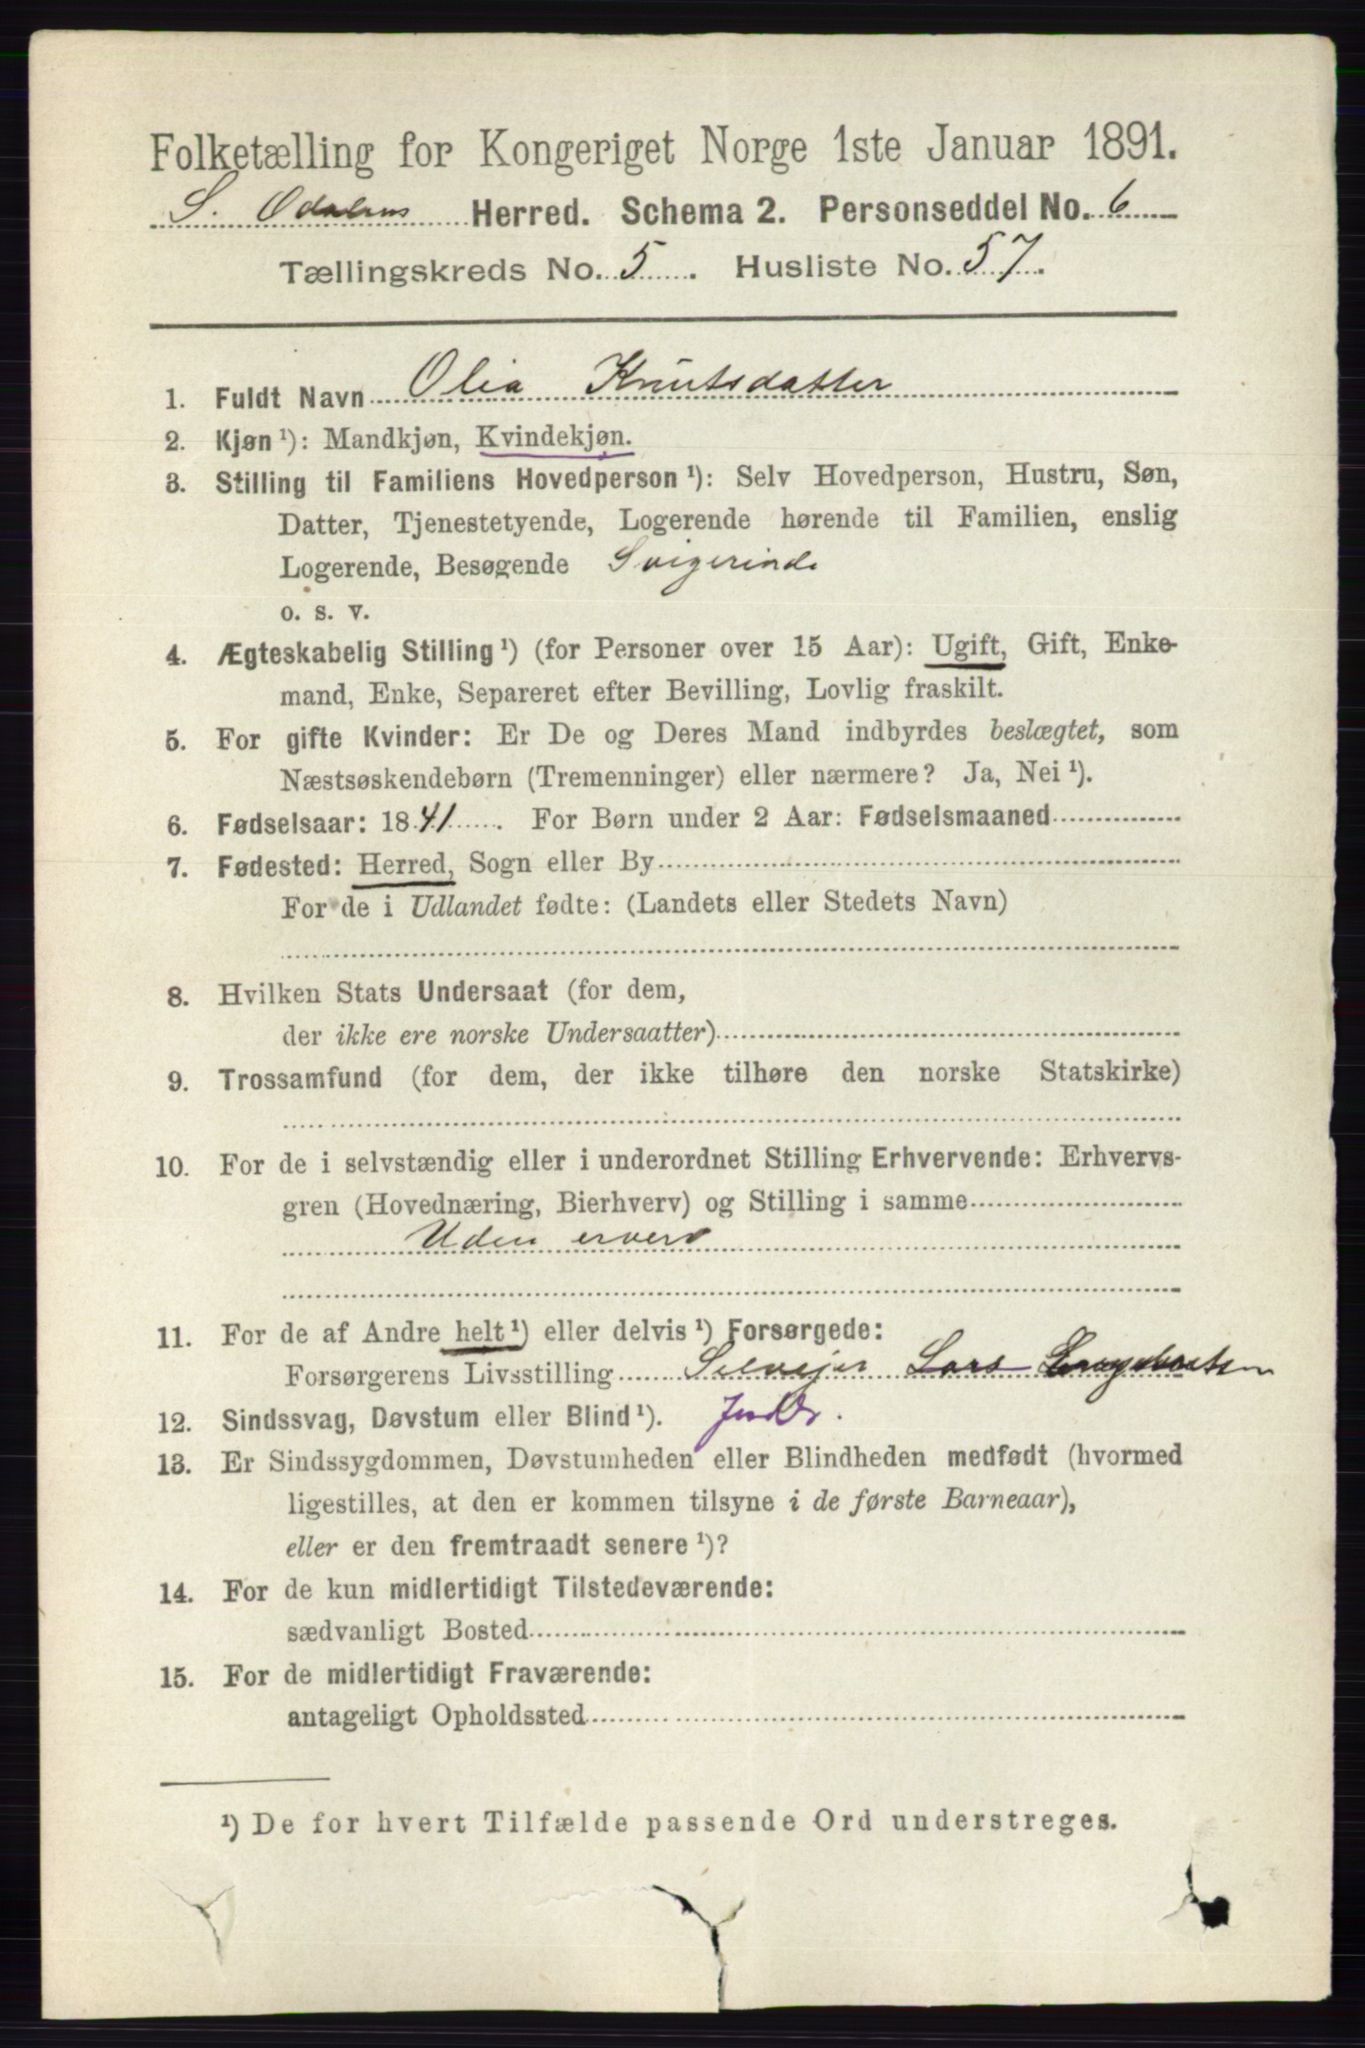 Folketælling for Kongeriget Norge 1ste Januar 1891.
S. Odalens Herred. Schema 2. Personseddel No. 6
Tællingskreds No. 5. Husliste No. 57.
1. Fuldt Navn Olia Knutsdatter
2. Kjøn ¹): Mandkjøn, Kvindekjøn.
3. Stilling til Familiens Hovedperson ¹): Selv Hovedperson, Hustru, Søn,
Datter, Tjenestetyende, Logerende hørende til Familien, enslig
Logerende, Besøgende Svigerinde
o. s. v.
4. Ægteskabelig Stilling ¹) (for Personer over 15 Aar): Ugift, Gift, Enke-
mand, Enke, Separeret efter Bevilling, Lovlig fraskilt.
5. For gifte Kvinder: Er De og Deres Mand indbyrdes beslægtet, som
Næstsøskendebørn (Tremenninger) eller nærmere? Ja, Nei ¹).
6. Fødselsaar: 1841. For Børn under 2 Aar: Fødselsmaaned
7. Fødested: Herred, Sogn eller By
For de i Udlandet fødte: (Landets eller Stedets Navn)
8. Hvilken Stats Undersaat (for dem,
der ikke ere norske Undersaatter)
9. Trossamfund (for dem, der ikke tilhøre den norske Statskirke)
10. For de i selvstændig eller i underordnet Stilling Erhvervende: Erhvervs-
gren (Hovednæring, Bierhverv) og Stilling i samme
Uden erverv
11. For de af Andre helt ¹) eller delvis ¹) Forsørgede:
Forsørgerens Livsstilling Selvejer Lars
12. Sindssvag, Døvstum eller Blind ¹).
13. Er Sindssygdommen, Døvstumheden eller Blindheden medfødt (hvormed
ligestilles, at den er kommen tilsyne i de første Barneaar),
eller er den fremtraadt senere ¹)?
14. For de kun midlertidigt Tilstedeværende:
sædvanligt Bosted
15. For de midlertidigt Fraværende:
antageligt Opholdssted
¹) De for hvert Tilfælde passende Ord understreges.